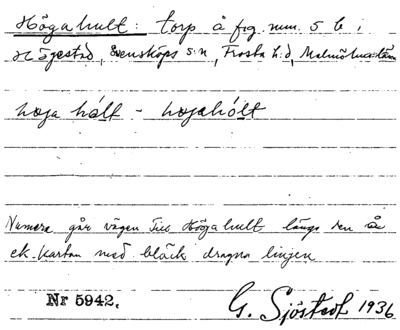 Högahult: torp å fig. num. 5 b i
Högestad, Svensköps s:n, Frosta h:d, Malmöhus län
högahult -
Numera går vägen till Högahult längs den å
ek. kartan med bläck dragna linjen
Nr 5942.
G. Sjöstedt 1936